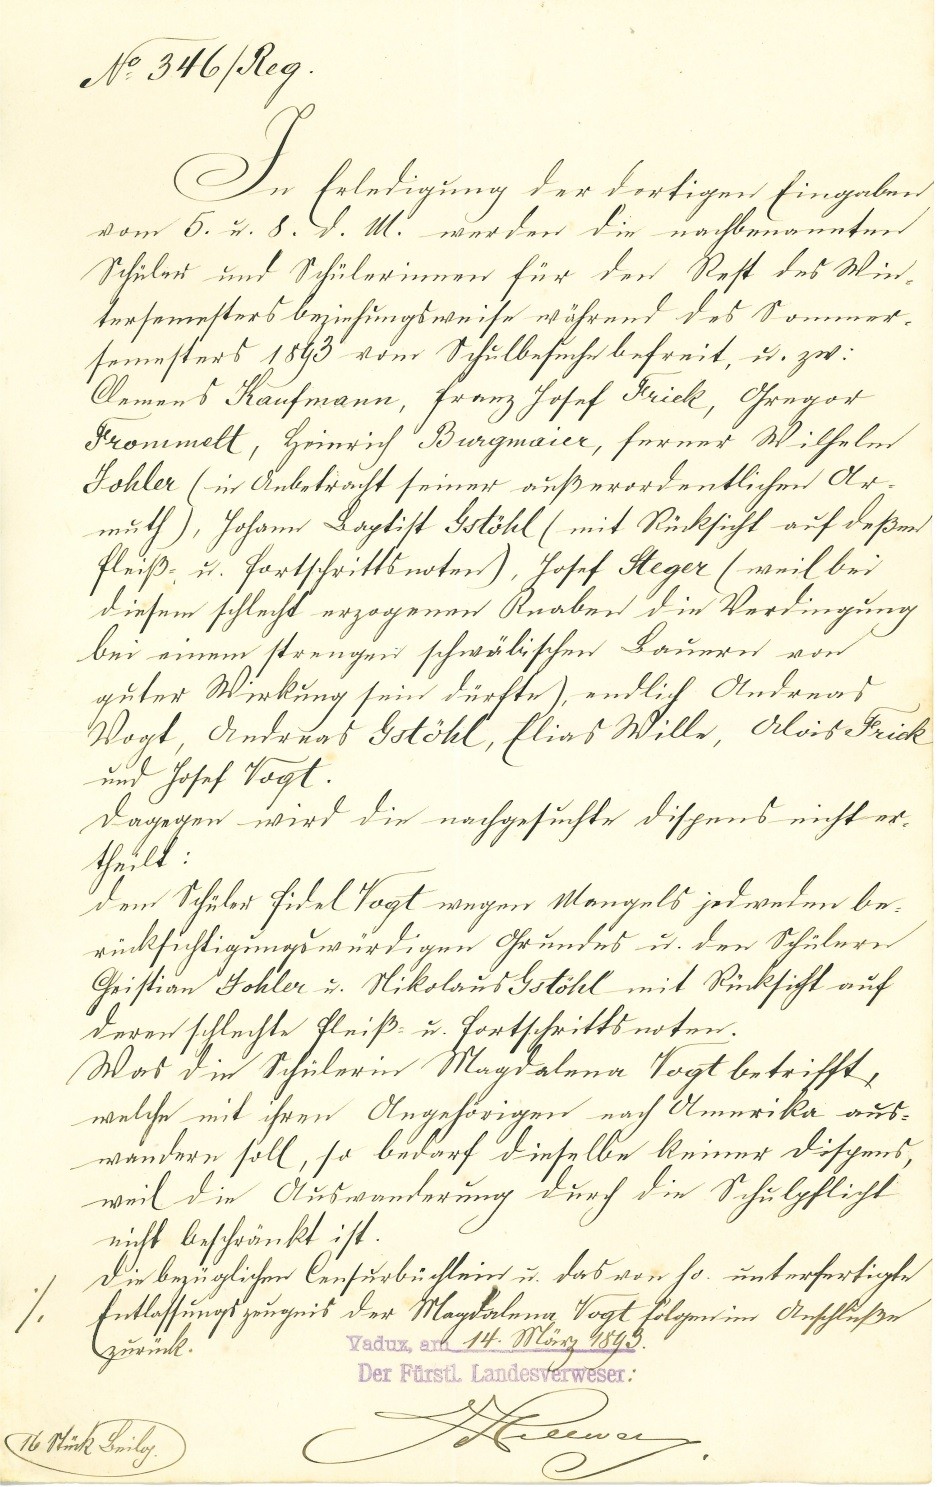 No 346/Reg.
In Erledigung der dortigen Eingaben
vom 5. u. 8. d. M. werden die nachbenannten
Schüler und Schülerinnen für den Rest des Win-
tersemesters beziehungsweise während des Sommer-
semesters 1893 vom Schulbesuche befreit, u. zw:
Clemens Kaufmann, Franz Josef Frick, Gregor
Frommelt, Heinrich Burgmaier, ferner Wilhelm
Johler (in Anbetracht seiner außerordentlichen Ar-
muth), Johann Baptist Gstöhl (mit Rücksicht auf deßen
Fleiß- u. Fortschrittsnoten), Josef Steger (weil bei
diesem schlecht erzogenen Knaben die Verdingung
bei einem strengen schwäbischen Bauern von
guter Wirkung sein dürfte), endlich Andreas
Vogt, Andreas Gstöhl, Elias Wille, Alois Frick
und Josef Vogt.
Dagegen wird die nachgesuchte Dispens nicht er-
theilt:
dem Schüler Fidel Vogt wegen Mangels jedweden be-
rücksichtigungswürdigen Grundes u. den Schülern
Christian Johler u. Nikolaus Gstöhl mit Rücksicht auf
deren schlechte Fleiß- u. Fortschrittsnoten.
Was die Schülerin Magdalena Vogt betrifft,
welche mit ihren Angehörigen nach Amerika aus-
wandern soll, so bedarf dieselbe keiner Dispens,
weil die Auswanderung durch die Schulpflicht
nicht beschränkt ist.
Die bezüglichen Censurbüchlein u. das von ho. unterfertigte
./. Entlassungszeugnis der Magdalena Vogt folgen im Anschluße
zurück.
Vadux, am 14. März 1893.
Der Fürstl. Landesverweser:
16 Stück Beilg.